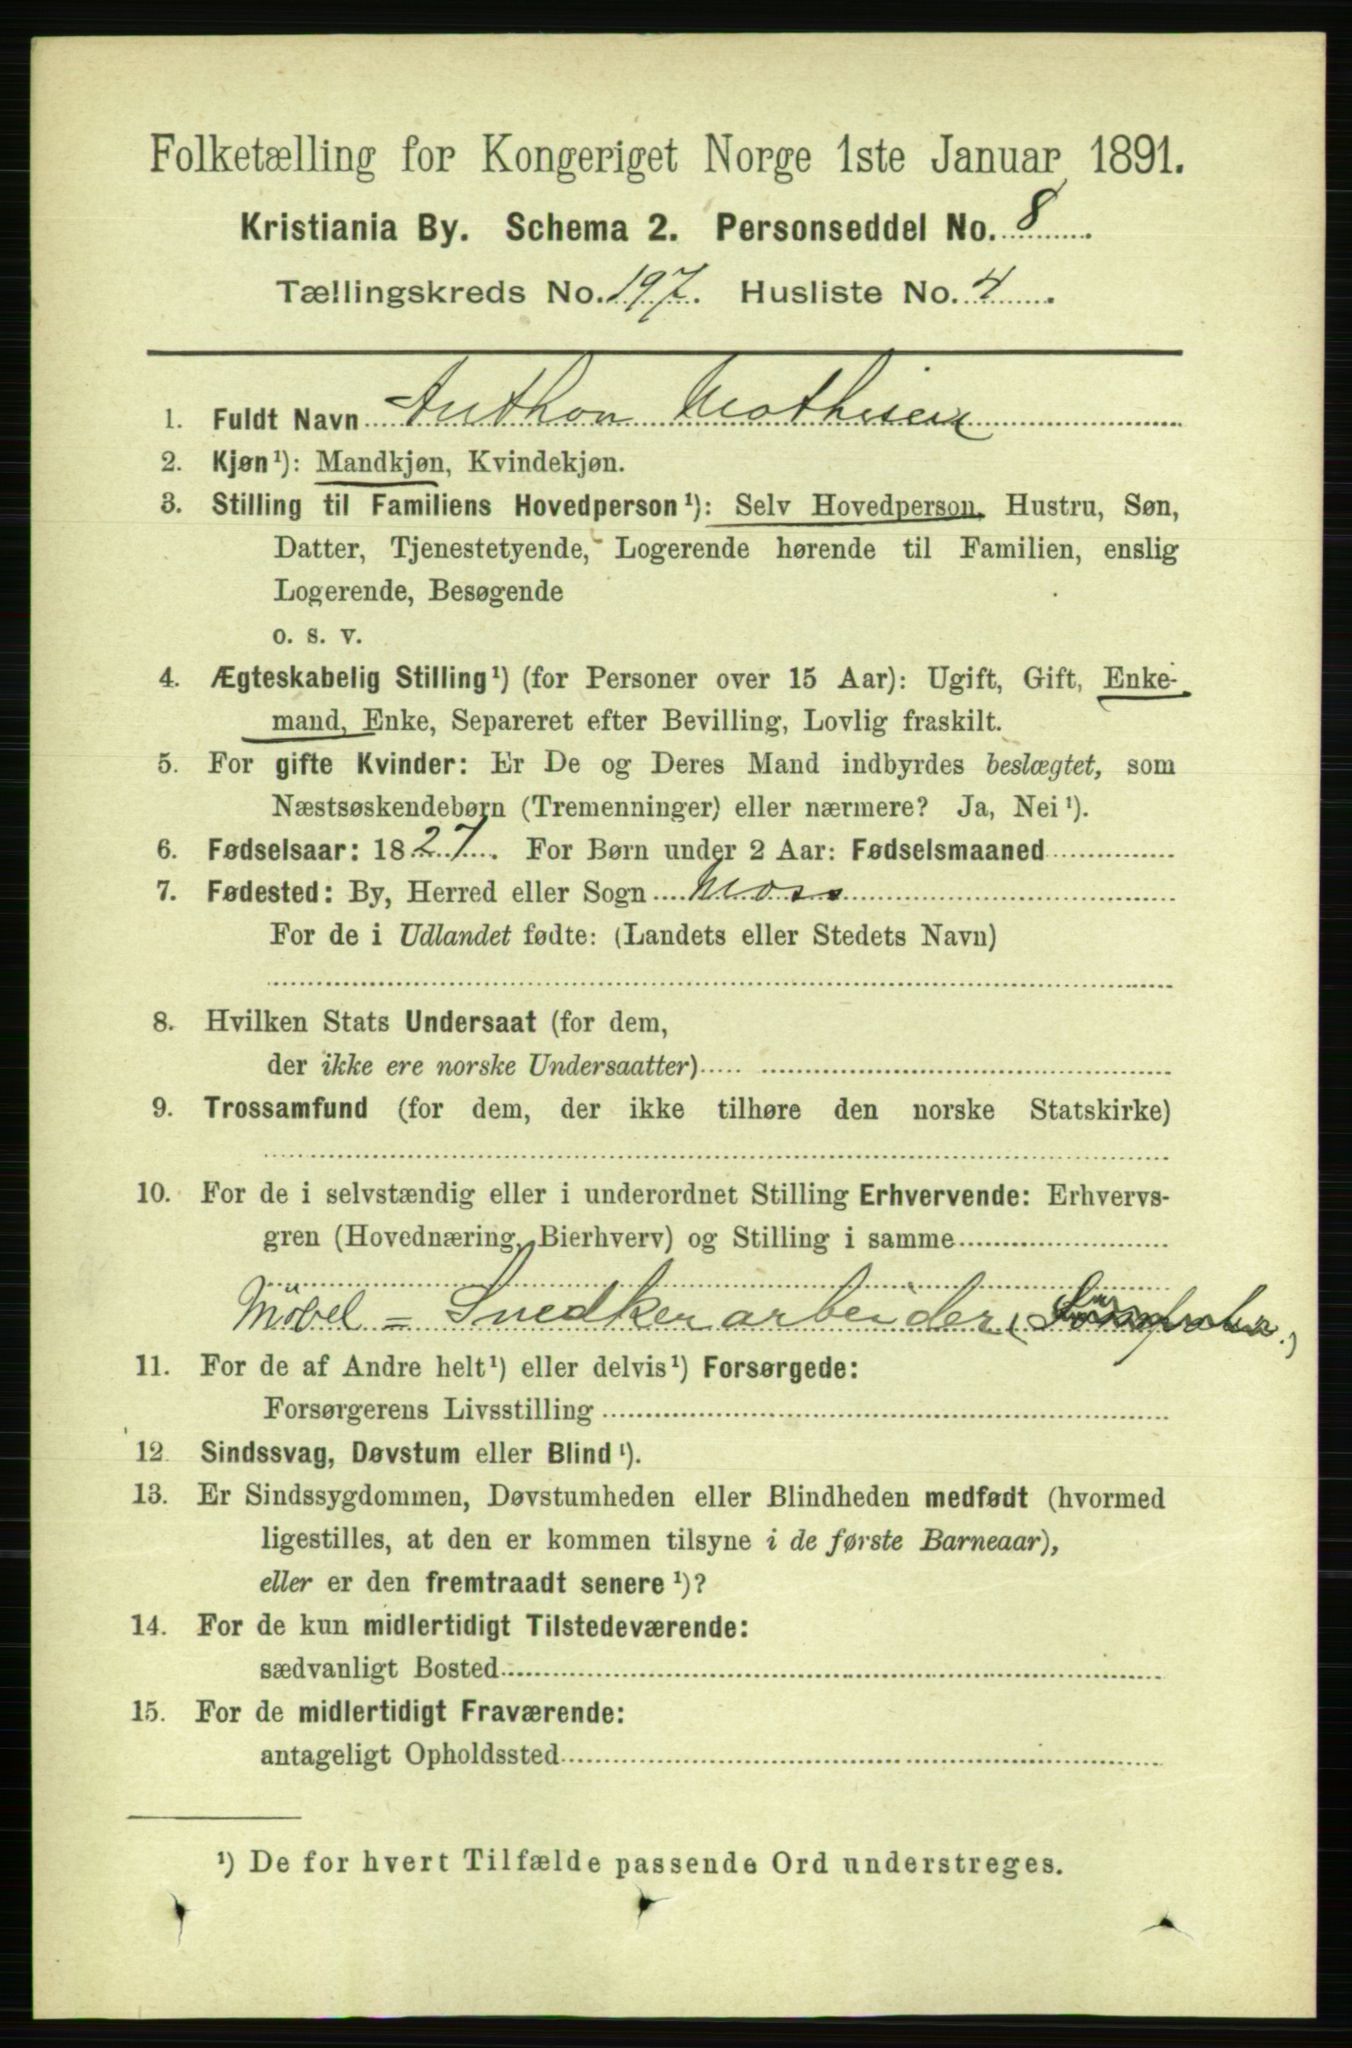 Folketælling for Kongeriget Norge 1ste Januar 1891.
Kristiania By. Schema 2. Personseddel No. 8
Tællingskreds No. 197. Husliste No. 4
1. Fuldt Navn Anthon Mathisen
2. Kjøn¹): Mandkjøn, Kvindekjøn.
3. Stilling til Familiens Hovedperson¹): Selv Hovedperson, Hustru, Søn,
Datter, Tjenestetyende, Logerende hørende til Familien, enslig
Logerende, Besøgende
o. s. v.
4. Ægteskabelig Stilling¹) (for Personer over 15 Aar): Ugift, Gift, Enke-
mand, Enke, Separeret efter Bevilling, Lovlig fraskilt.
5. For gifte Kvinder: Er De og Deres Mand indbyrdes beslægtet, som
Næstsøskendebørn (Tremenninger) eller nærmere? Ja, Nei¹).
6. Fødselsaar: 1827. For Børn under 2 Aar: Fødselsmaaned
7. Fødested: By, Herred eller Sogn Moss
For de i Udlandet fødte: (Landets eller Stedets Navn)
8. Hvilken Stats Undersaat (for dem,
der ikke ere norske Undersaatter)
9. Trossamfund (for dem, der ikke tilhøre den norske Statskirke)
10. For de i selvstændig eller i underordnet Stilling Erhvervende: Erhvervs-
gren (Hovednæring, Bierhverv) og Stilling i samme
Möbel = Snedker arbeider
11. For de af Andre helt¹) eller delvis¹) Forsørgede:
Forsørgerens Livsstilling
12. Sindssvag, Døvstum eller Blind¹).
13. Er Sindssygdommen, Døvstumheden eller Blindheden medfødt (hvormed
ligestilles, at den er kommen tilsyne i de første Barneaar),
eller er den fremtraadt senere¹)?
14. For de kun midlertidigt Tilstedeværende:
sædvanligt Bosted
15. For de midlertidigt Fraværende:
antageligt Opholdssted
¹) De for hvert Tilfælde passende Ord understreges.